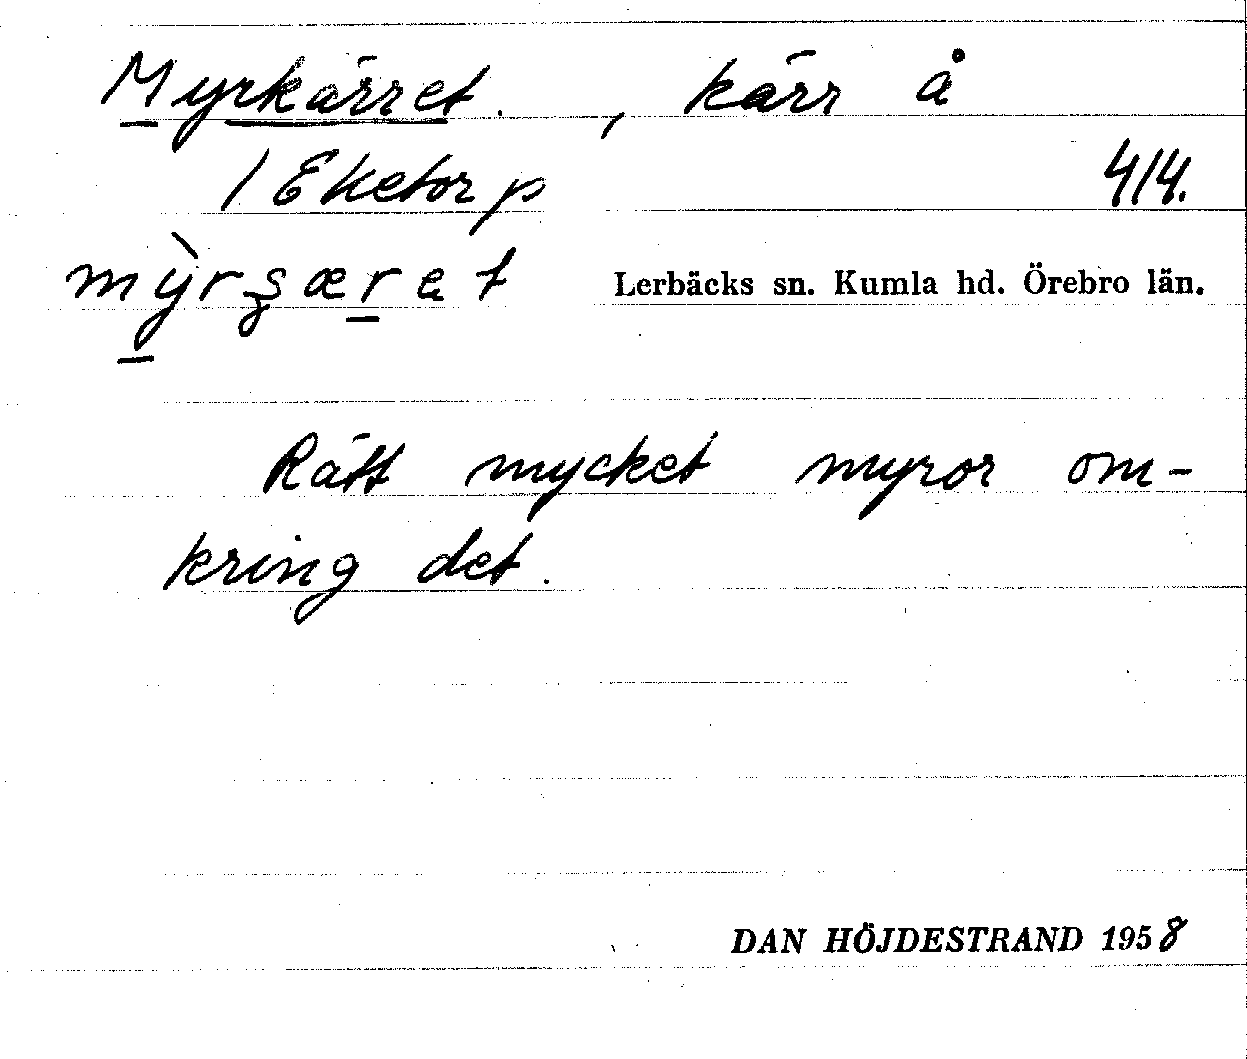 Myrkärret. , kärr å
1 Eketorp 414.
mỳrʂæret Lerbäcks sn. Kumla hd. Örebro län.
Rätt mycket myror om-
kring det.
DAN HÖJDESTRAND 1958